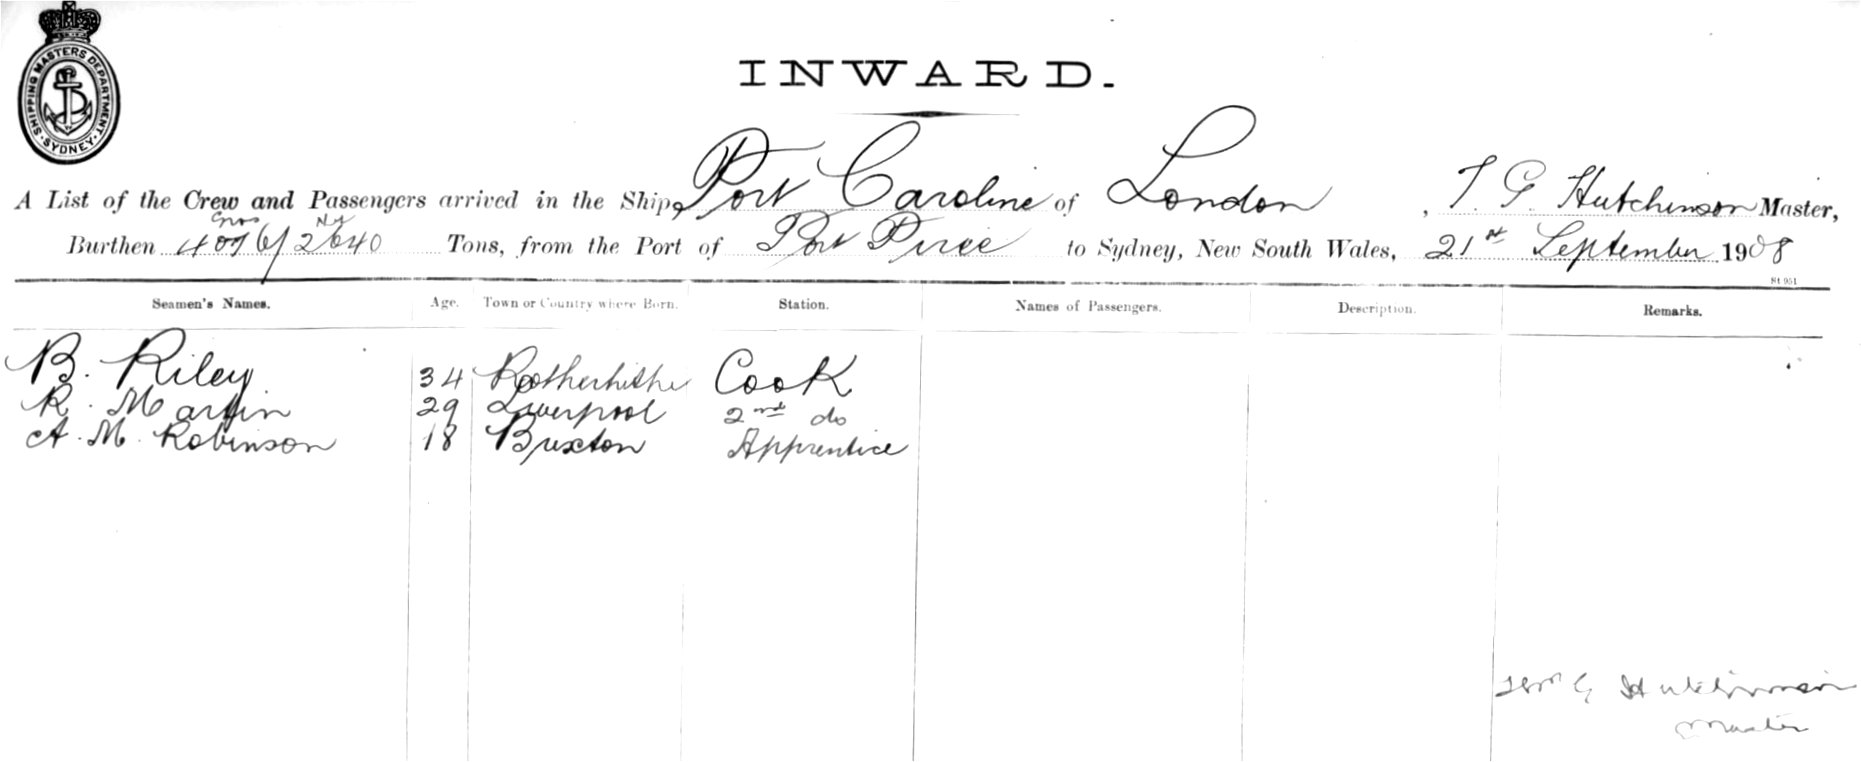 SHIPPING MASTERS DEPARTMENT
SYDNEY
INWARD.
A List of the Crew and Passengers arrived in the Ship Port Caroline of London, T. G. Hutchinson Master,
Gross Nt
Burthen 4076/2640 Tons, from the Port of Port Pirie to Sydney, New South Wales, 21st September 1908
St 951
Seamen's Names. Age. Town or Country where Born. Station. Names of Passengers. Description. Remarks.
B. Riley 34 Rotherhithe Cook
R. Martin 29 Liverpool 2nd do
A. M. Robinson 18 Buxton Apprentice
Thos G Hutchinson
Master